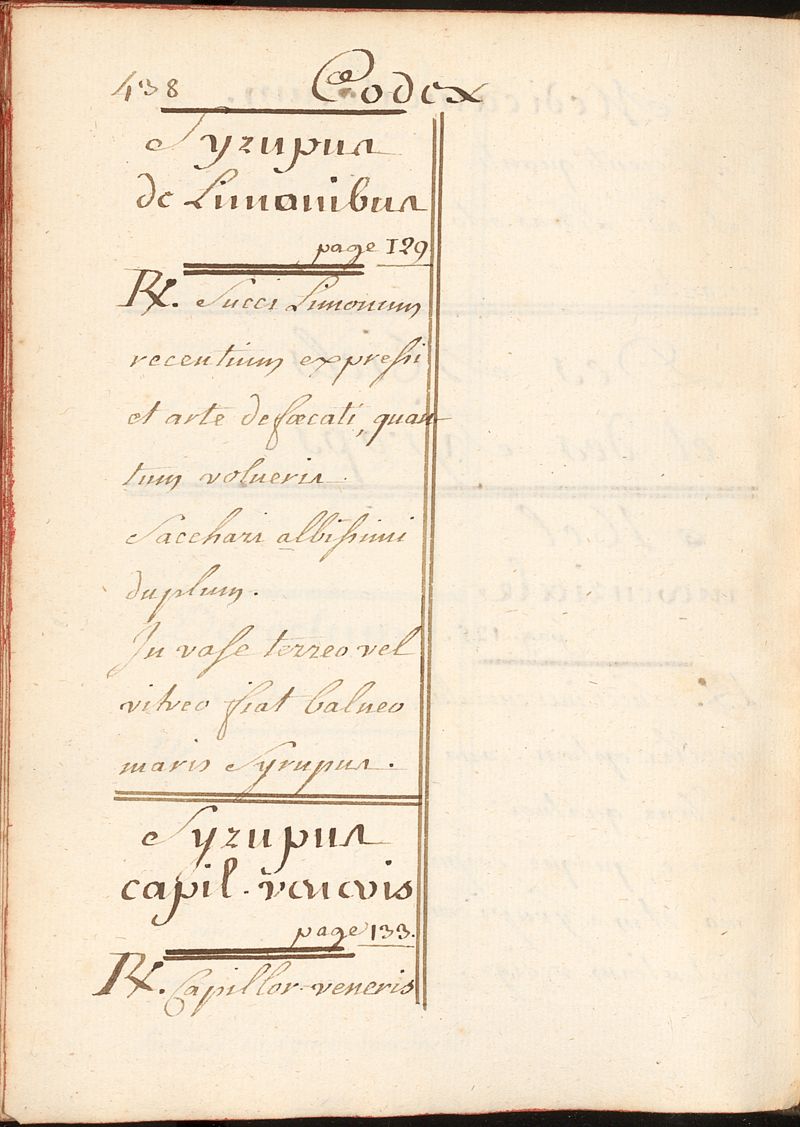 438 Codex
Syrupus
de Limonibus
page 129
℞. Succi Limonum
recentium expressi
et arte defœcati, quan
tum volueris.
Sacchari albissimi
duplum.
In vase terreo vel
vitreo fiat balneo
maris Syrupus.
Syrupus
capil. veneris
page 133.
℞. Capillor. veneris